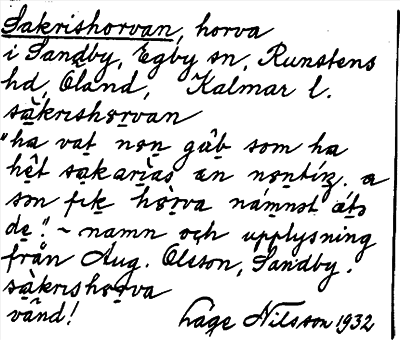 Sakrishorvan, horva
i Sandby, Egby sn, Runstens
hd, Öland, Kalmar l.
sàkrishọrvan
"ha vaṭ nọn gåb som ha
hêt sạkarìas an nọntíŋ. a
sɷn fɩk hòrva námnət áts
dẹ." ~ namn och upplysning
från Aug. Olsson, Sandby.
sàkrishọrva
vänd! Låge Nilsson 1932